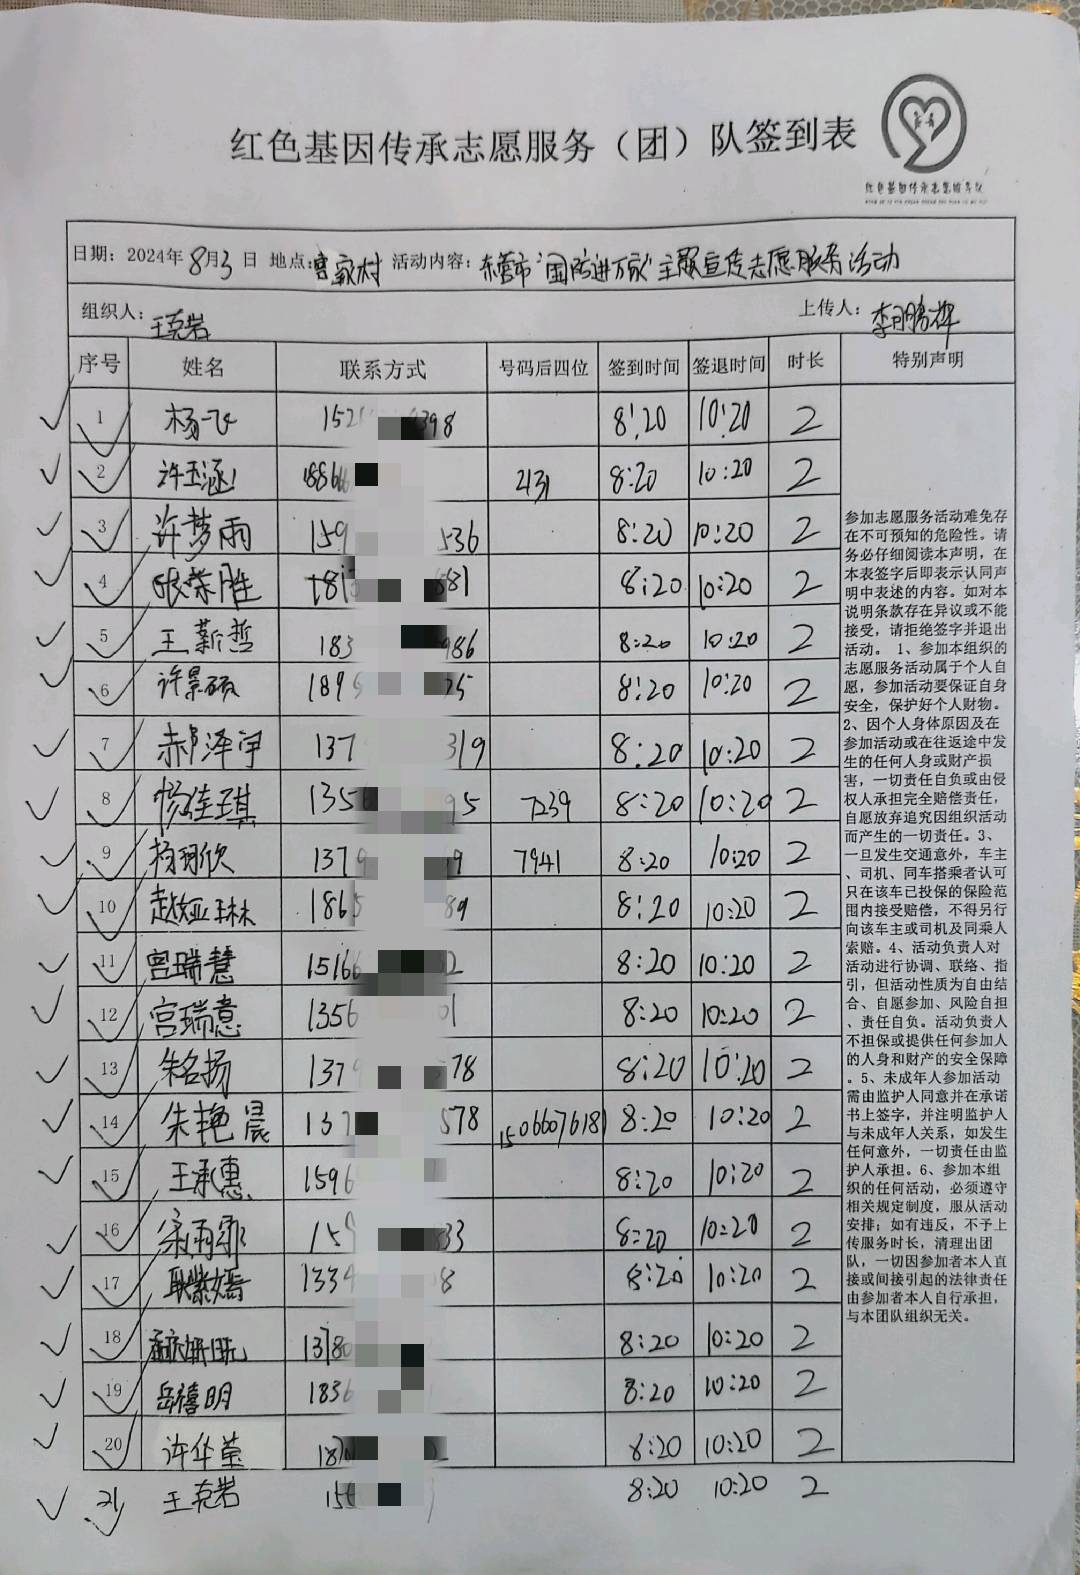 红色基因传承志愿服务（团）队签到表
红色基因传承志愿服务队
日期：2024年8月3日 地点：曹家村 活动内容：东营市“国防进万家”主题宣传志愿服务活动
组织人：王克岩 上传人：李明鹏
序号 姓名 联系方式 号码后四位 签到时间 签退时间 时长 特别声明
1 杨飞 8:20 10:20 2
2 许玉涵 2131 8:20 10:20 2
3 许梦雨 8:20 10:20 2
4 张荣胜 8:20 10:20 2
5 王薪哲 8:20 10:20 2
6 许景硕 8:20 10:20 2
7 郝泽宇 8:20 10:20 2
8 杨佳琪 7239 8:20 10:20 2
9 杨玥欣 7941 8:20 10:20 2
10 赵娅琳 8:20 10:20 2
11 宫瑞慧 8:20 10:20 2
12 宫瑞意 8:20 10:20 2
13 朱名扬 8:20 10:20 2
14 朱艳晨 15066076181 8:20 10:20 2
15 王承惠 8:20 10:20 2
16 8:20 10:20 2
17 耿紫嫣 8:20 10:20 2
18 8:20 10:20 2
19 岳禧明 8:20 10:20 2
20 许华莹 8:20 10:20 2
21 王克岩 8:20 10:20 2
参加志愿服务活动难免存
在不可预知的危险性。请
务必仔细阅读本声明，在
本表签字后即表示认同声
明中表述的内容。如对本
说明条款存在异议或不能
接受，请拒绝签字并退出
活动。 1、参加本组织的
志愿服务活动属于个人自
愿，参加活动要保证自身
安全，保护好个人财物。
2、因个人身体原因及在
参加活动或在往返途中发
生的任何人身或财产损
害，一切责任自负或由侵
权人承担完全赔偿责任，
自愿放弃追究因组织活动
而产生的一切责任。3、
一旦发生交通意外，车主
、司机、同车搭乘者认可
只在该车已投保的保险范
围内接受赔偿，不得另行
向该车主或司机及同乘人
索赔。4、活动负责人对
活动进行协调、联络、指
引，但活动性质为自由结
合、自愿参加、风险自担
、责任自负。活动负责人
不担保或提供任何参加人
的人身和财产的安全保障
。5、未成年人参加活动
需由监护人同意并在承诺
书上签字，并注明监护人
与未成年人关系，如发生
任何意外，一切责任由监
护人承担。6、参加本组
织的任何活动，必须遵守
相关规定制度，服从活动
安排；如有违反，不予上
传服务时长，清理出团
队，一切因参加者本人直
接或间接引起的法律责任
由参加者本人自行承担，
与本团队组织无关。